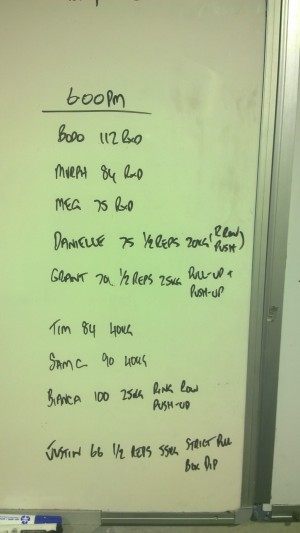 600PM
BODO 112 RXD
MURPH 84 RXD
MEG 75 RXD
DANIELLE 75 1/2 REPS 20KG (R ROW PUSH)
GRANT 1/2 REPS 25KG PULL-UP + PUSH-UP
TIM 84 40KG
SAM C 90 40KG
BIANCA 100 25KG RING ROW PUSH-UP
JUSTIN 66 1/2 REPS 55KG STRICT PULL BOX DIP